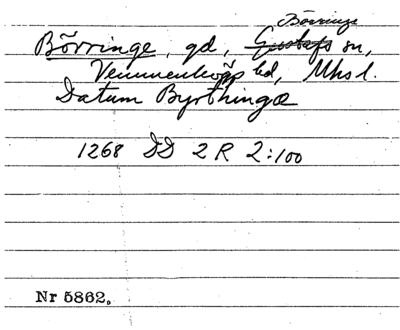 Börringe
Börringe, gd, Gustafs sn,
Vemmenhögs hd, Mhs l.
Datum Byrthingæ
1268 DD 2 R 2:100
Nr 5862.